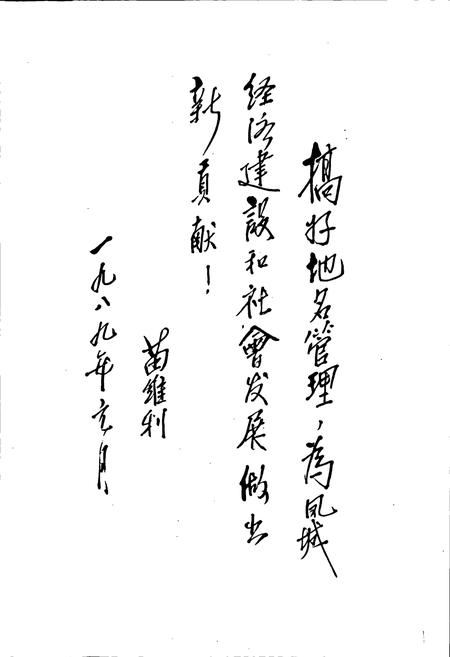 搞好地名管理，为凤城
经济建設和社會发展做出
新贡献！
苗维利
一九八九年元月